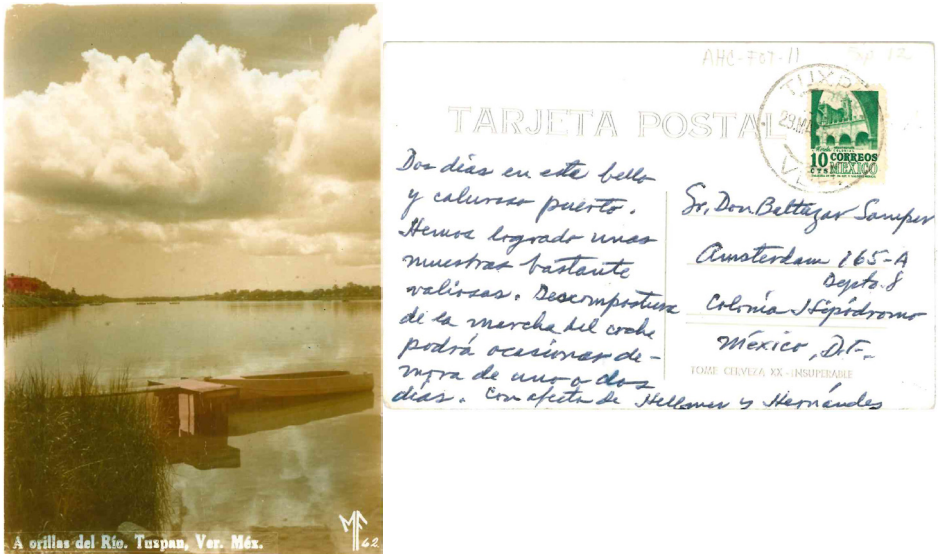 A orillas del Río. Tuspan, Ver. Méx.
MF 62
AHC-FOT-11
TARJETA POSTAL
TUXP
29 M
VE
10 CTS CORREOS
MEXICO
Dos días en este bello
y caluroso puerto.
Hemos logrado unas
muestras bastante
valiosas. Descompostura
de la marcha del coche
podrá ocasionar de-
mora de uno o dos
días. Con afecto de Hellmer y Hernández
Sr. Don Baltazar Samper
Amsterdam 165-A
Depto. 8
Colonia Hipódromo
México, D.F.
TOME CERVEZA XX - INSUPERABLE